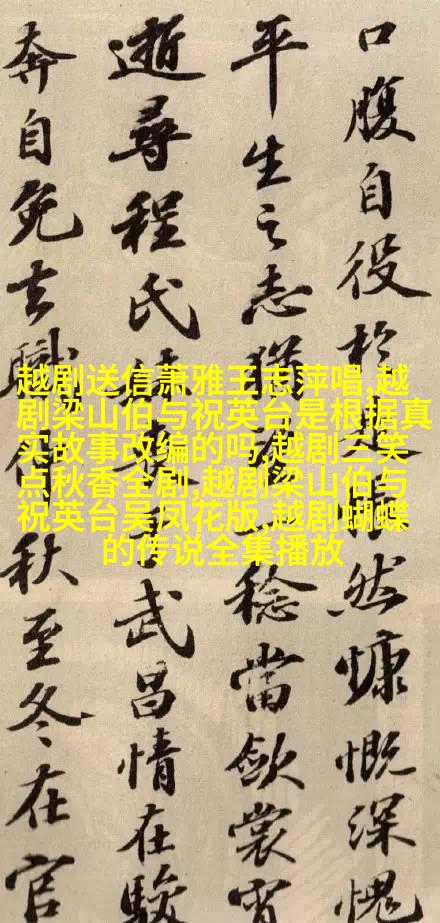 口腹自役於是悵然慷慨深愧
平生之志猶稔當斂裳宵
逝尋程氏妹武昌情在駿
奔自免去職仲秋至冬在官
越剧送信萧雅王志萍唱,越
剧梁山伯与祝英台是根据真
实故事改编的吗,越剧三笑
点秋香全剧,越剧梁山伯与
祝英台吴凤花版,越剧蝴蝶
的传说全集播放